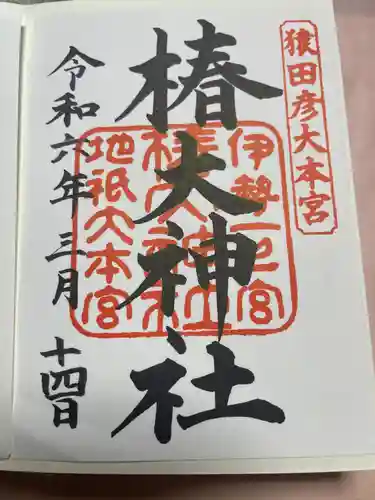 猿田彦大本宮
椿大神社
伊勢一の宮
椿大神社
地祇大本宮
令和六年三月十四日